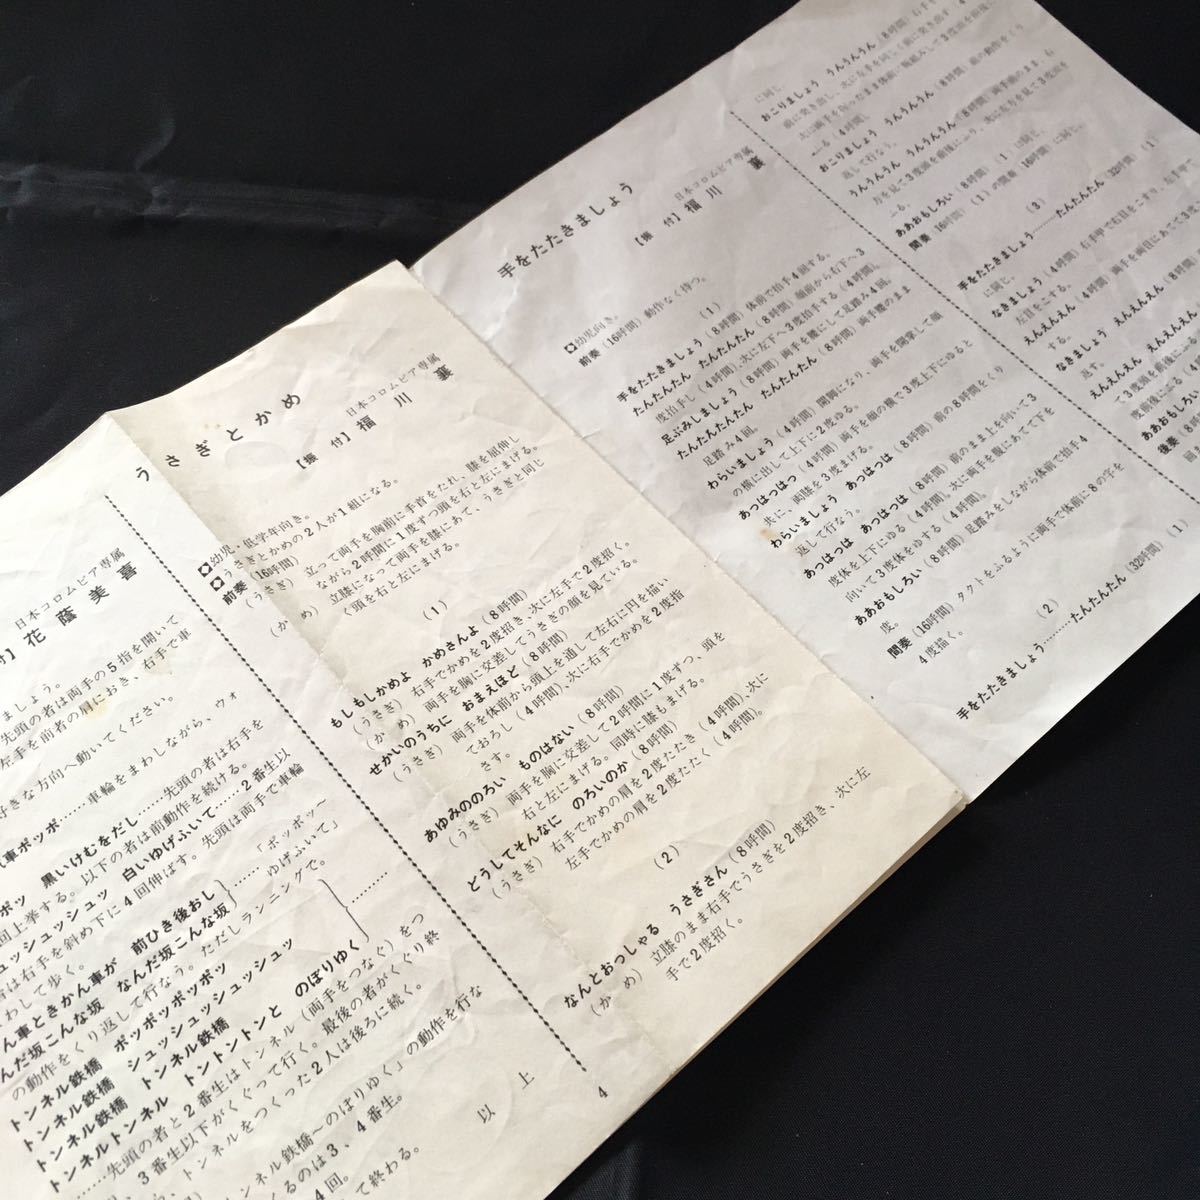 ましょう。
先頭の者は両手の5指を開いて
左手を前者の肩におき、右手で車
好きな方向へ動いてください。
車ポッポ……車輪をまわしながら、ウォ
黒いけむをだし……先頭の者は右手を
回上挙する。以下の者は前動作を続ける。
ュッシュッシュッ 白いゆげふいて……2番生以
者は右手を斜め下に4回伸ばす。先頭は両手で車輪
わして歩く。
ん車ときかん車が 前ひき後おし
んだ坂こんな坂 なんだ坂こんな坂
「ポッポッ〜
ゆげふいて」
の動作をくり返して行なう。ただしランニングで。
トンネル鉄橋 ポッポッポッポッ
トンネル鉄橋 シュッシュッシュッシュッ
トンネル鉄橋 トンネル鉄橋
トンネルトンネル トントントンと のぼりゆく
……先頭の者と2番生はトンネル(両手をつなぐ)をつ
、3番生以下がくぐって行く。最後の者がくぐり終
、トンネルをつくった2人は後ろに続く。
ンネル鉄橋〜のぼりゆく」の動作を行な
るのは3、4番生。
4回。
て終わる。
以上
日本コロムビア専属
付】花蔭美喜
4
うさぎとかめ
日本コロムビア専属
【振付】福川 襄
幼児・低学年向き。
うさぎとかめの2人が1組になる。
前奏(16呼間)
(うさぎ) 立って両手を胸前に手首をたれ、膝を屈伸し
ながら2呼間に1度ずつ頭を右と左にまげる。
(かめ) 立膝になって両手を膝にあて、うさぎと同じ
く頭を右と左にまげる。
(1)
もしもしかめよ かめさんよ(8呼間)
(うさぎ) 右手でかめを2度招き、次に左手で2度招く。
(かめ) 両手を胸に交差してうさぎの顔を見ている。
せかいのうちに おまえほど(8呼間)
(うさぎ) 両手を体前から頭上を通して左右に円を描い
ておろし(4呼間)、次に右手でかめを2度指
さす。
あゆみののろい ものはない(8呼間)
(うさぎ) 両手を胸に交差して2呼間に1度ずつ、頭を
右と左にまげる。同時に膝もまげる。
どうしてそんなに のろいのか(8呼間)
(うさぎ) 右手でかめの肩を2度たたき(4呼間)、次に
左手でかめの肩を2度たたく(4呼間)。
(2)
なんとおっしゃる うさぎさん(8呼間)
(かめ) 立膝のまま右手でうさぎを2度招き、次に左
手で2度招く。
手をたたきましょう
日本コロムビア専属
【振付】福川 襄
幼児向き。
前奏(16呼間)動作なく待つ。
(1)
手をたたきましょう(8呼間)体前で拍手4回する。
たんたんたん たんたんたん(8呼間)顔前から右下へ3
度拍手し(4呼間)、次に左下へ3度拍手する(4呼間)。
足ぶみしましょう(8呼間)両手を腰にして足踏み4回。
たんたんたんたん たんたんたん(8呼間)両手腰のまま
足踏み4回。
わらいましょう(4呼間)開脚になり、両手を開掌して顔
の横に出して上下に2度ゆる。
あっはっはっ(4呼間)両手を顔の横で3度上下にゆると
共に、両膝を3度まげる。
わらいましょう あっはっは(8呼間)前の8呼間をくり
返して行なう。
あっはっは あっはっは(8呼間)前のまま上を向いて3
度体を上下にゆる(4呼間)。次に両手を腹にあてて下を
向いて3度体をゆする(4呼間)。
ああおもしろい(8呼間)足踏みをしながら体前で拍手4
度。
間奏(16呼間)タクトをふるように両手で体前に8の字を
4度描く。
(2)
手をたたきましょう……たんたんたん(32呼間)(1)
に同じ。
おこりましょう うんうんうん(8呼間)
おこりましょう うんうんうん(8呼間)前の動作をくり
返して行なう。
うんうんうん うんうんうん(8呼間)両手前のまま、
ああおもしろい(8呼間)(1)に同じ。
間奏(16呼間)(1)の間奏(16呼間)に同じ。
(3)
手をたたきましょう……たんたんたん(32呼間)(1)
に同じ。
なきましょう(4呼間)右手甲で右目をこすり、
左目をこする。
えんえんえん(4呼間)両手を両目にあてて3度
する。
なきましょう えんえんえん(8呼間)
えんえんえん えんえんえん
ああおもしろい
後奏(8呼